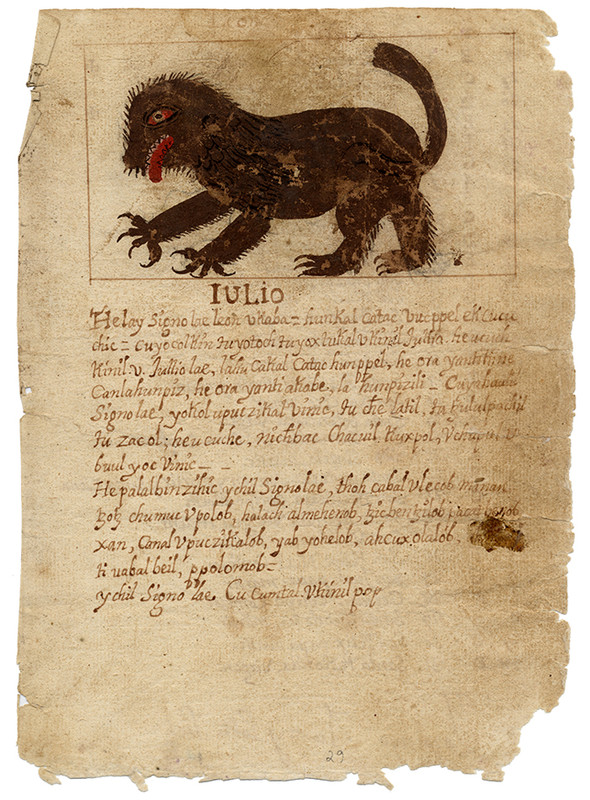 IULIO
Helay Signo lae leon vkaba= hunkal catac vucppel ek cucu
chic = cuyocol kin tu yotoch tu yox lukal vkinil Jullio. he ucuch
kinil v. Jullio lae, lahu cakal catac hunppel, he ora yanti kine
Canlahunpiz, he ora yanti akabe, la hunpizili =
Signo lae, yokol upuczikal vinic, tu che latil,
tu zacol; he u cuche, nichbac Chacuil kuxpol,
buul y oc Vinic_ _
He palalbinzihic ychil Signo lae, thoh cabal vlecob manan
tzotz chumuc Vpolob, halach almehenob, tzicbentzilob
xan, Canal Vpuczikalob, yab yohelob, ahcuxolalob,
ti uabal beil, ppolomob=
ychil Signo lae Cu cumtal. Vkinil pop
29